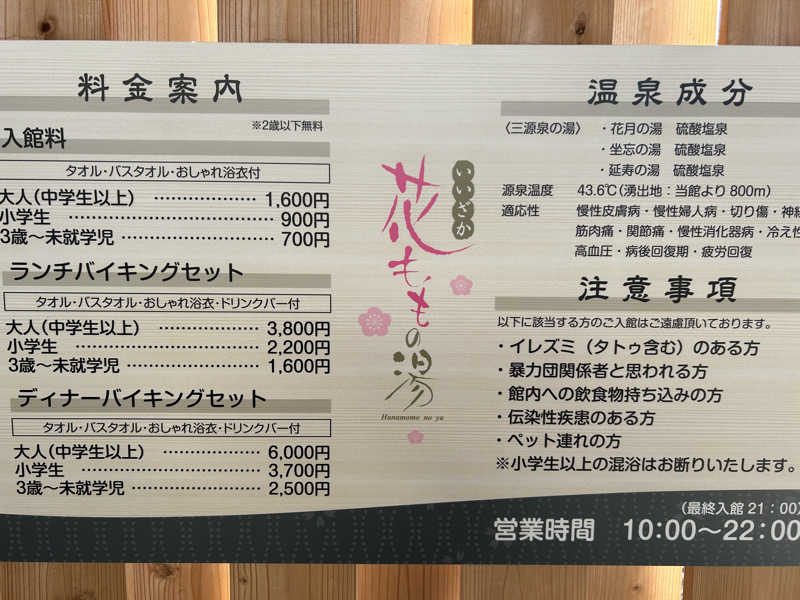 料金案内
※2歳以下無料
入館料
タオル・バスタオル・おしゃれ浴衣付
大人（中学生以上） ………………… 1,600円
小学生 ………………………… 900円
3歳〜未就学児 ……………………… 700円
ランチバイキングセット
タオル・バスタオル・おしゃれ浴衣・ドリンクバー付
大人（中学生以上） ………………… 3,800円
小学生 ………………………… 2,200円
3歳〜未就学児 ……………………… 1,600円
ディナーバイキングセット
タオル・バスタオル・おしゃれ浴衣・ドリンクバー付
大人（中学生以上） ………………… 6,000円
小学生 ………………………… 3,700円
3歳〜未就学児 ……………………… 2,500円
いいざか
花ももの湯
Hanamomo no yu
温泉成分
〈三源泉の湯〉 ・花月の湯 硫酸塩泉
・坐忘の湯 硫酸塩泉
・延寿の湯 硫酸塩泉
源泉温度 43.6℃（湧出地：当館より 800m）
適応性 慢性皮膚病・慢性婦人病・切り傷・神経
筋肉痛・関節痛・慢性消化器病・冷え性
高血圧・病後回復期・疲労回復
注意事項
以下に該当する方のご入館はご遠慮頂いております。
・イレズミ（タトゥ含む）のある方
・暴力団関係者と思われる方
・館内への飲食物持ち込みの方
・伝染性疾患のある方
・ペット連れの方
※小学生以上の混浴はお断りいたします。
（最終入館 21：00）
営業時間 10:00〜22:00